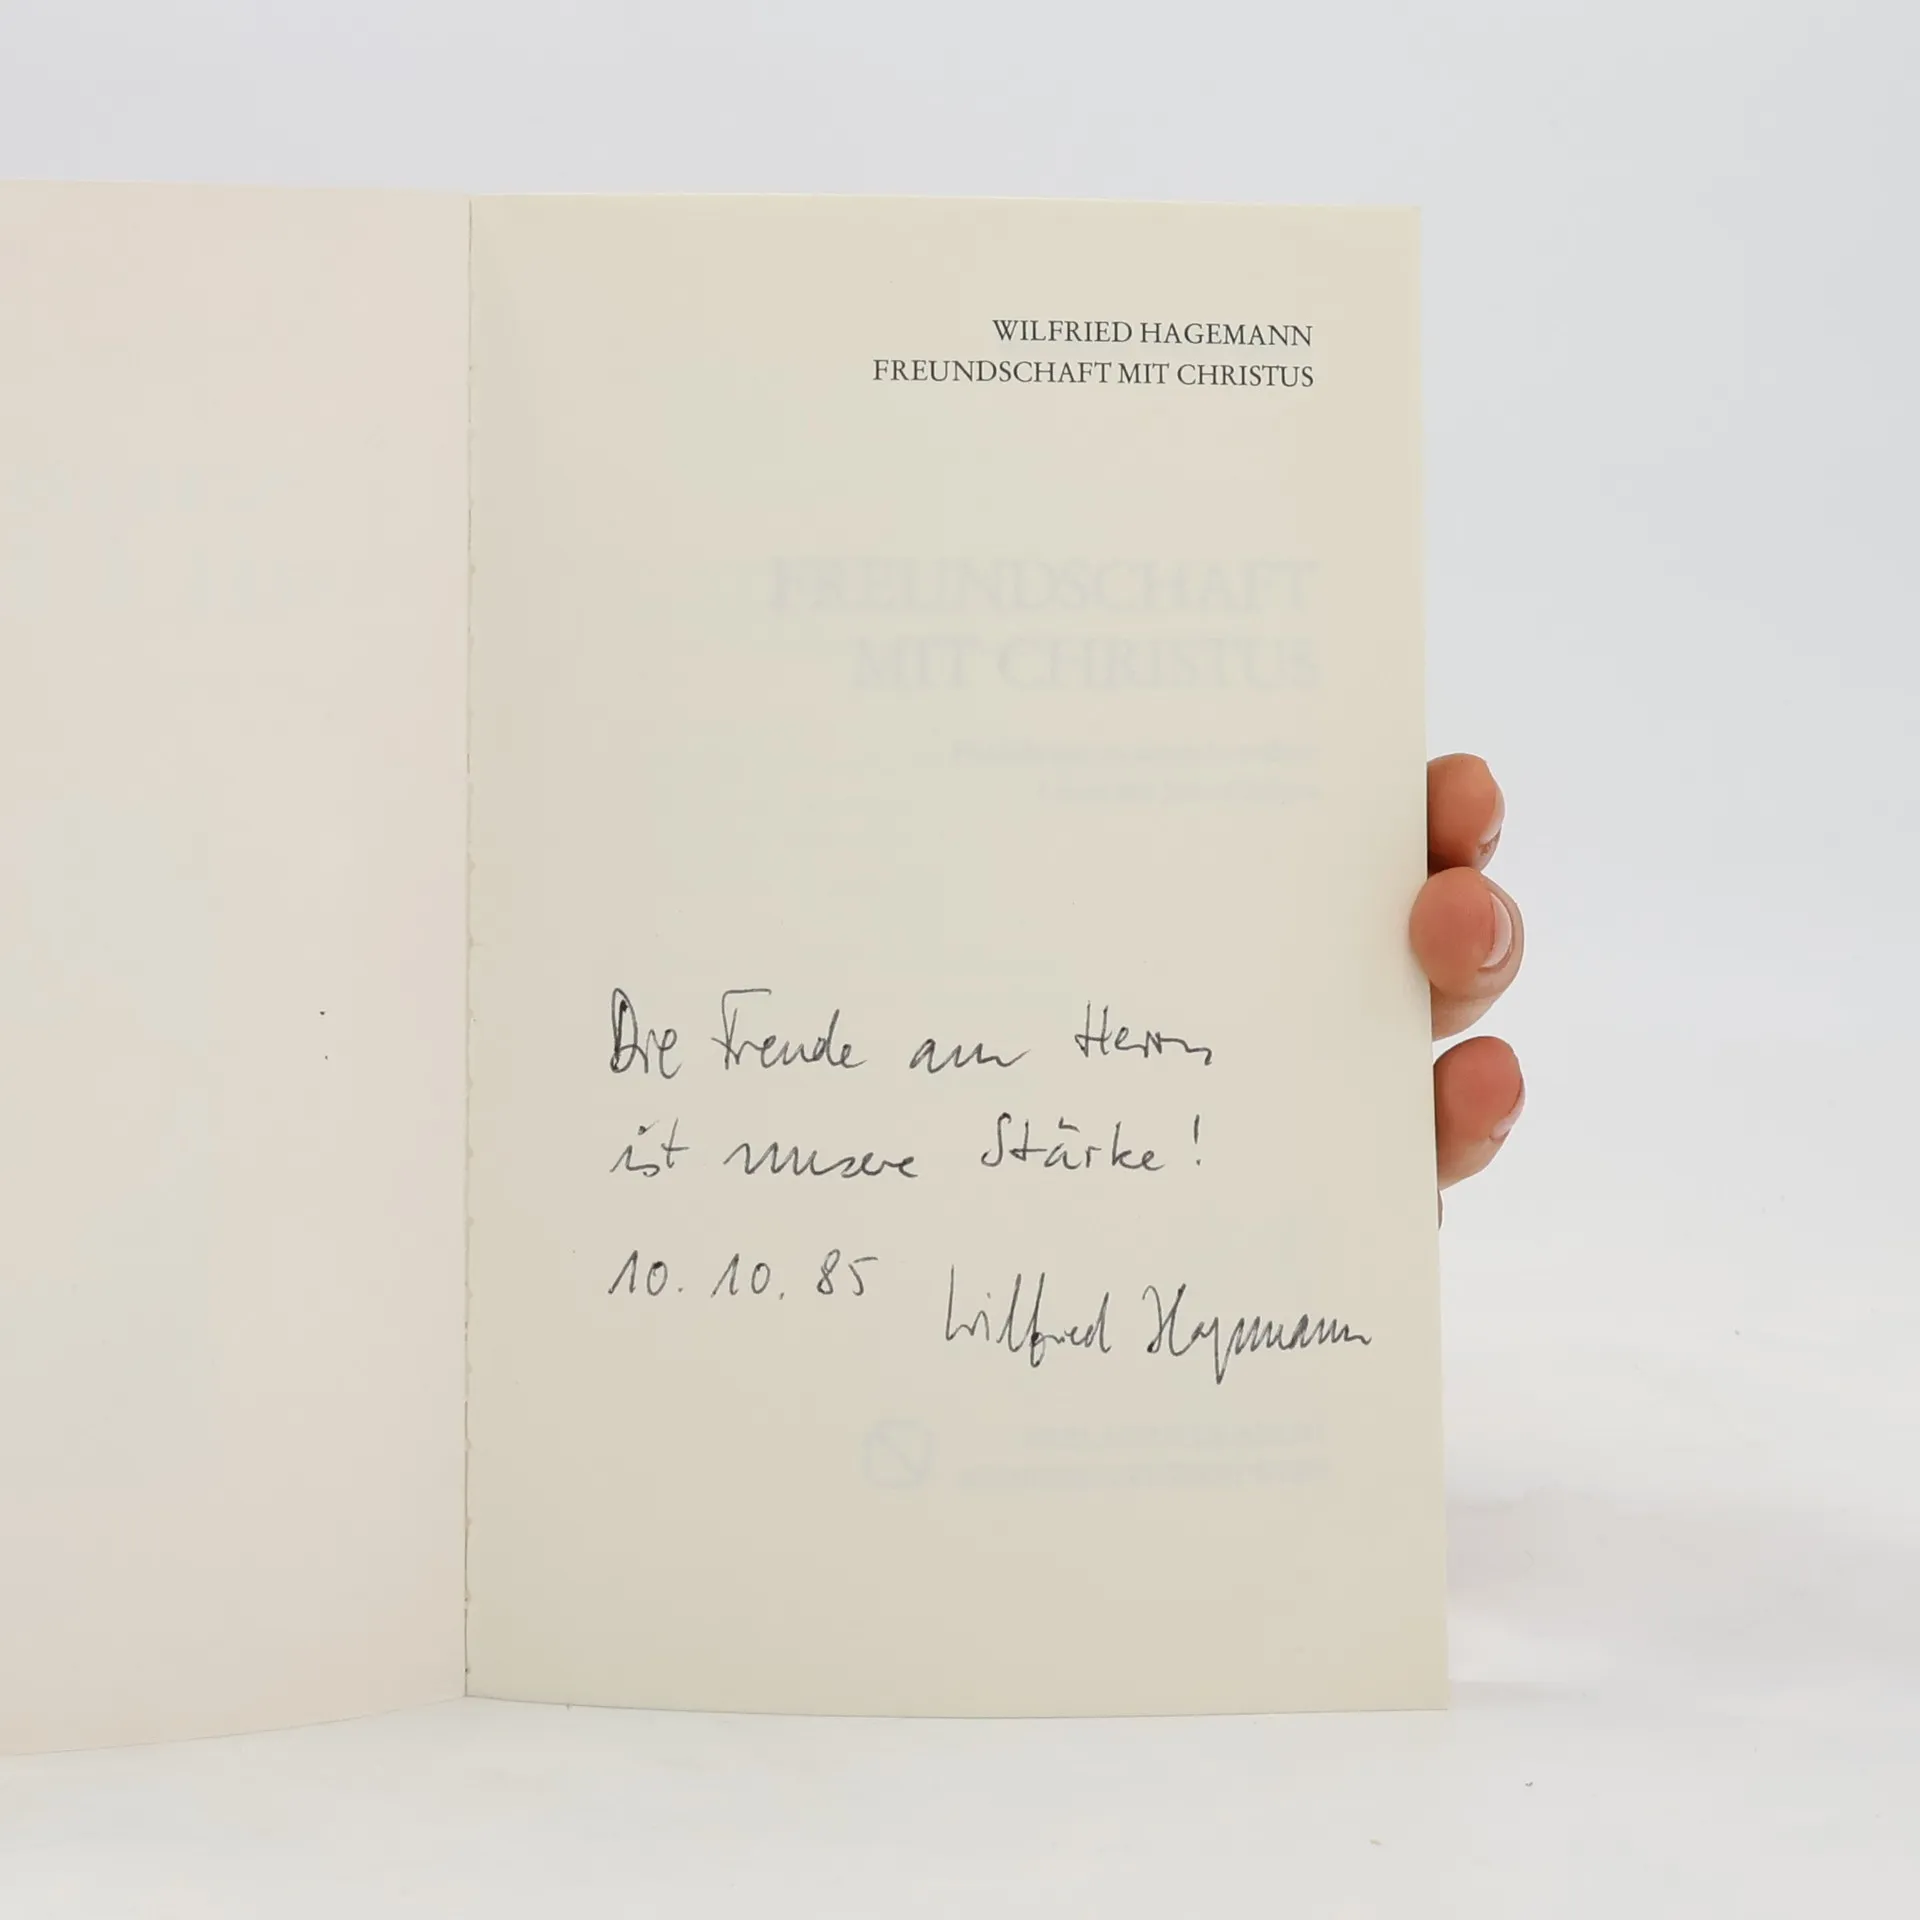 WILFRIED HAGEMANN
FREUNDSCHAFT MIT CHRISTUS
FREUNDSCHAFT
MIT CHRISTUS
Die Freude am Herrn
ist unsere Stärke!
10.10.85 Wilfried Hagemann